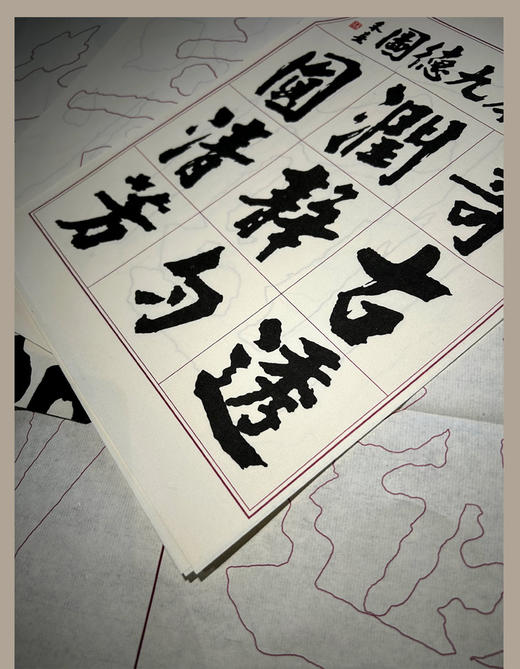 九德圖
奇古透
潤静匀
清芳